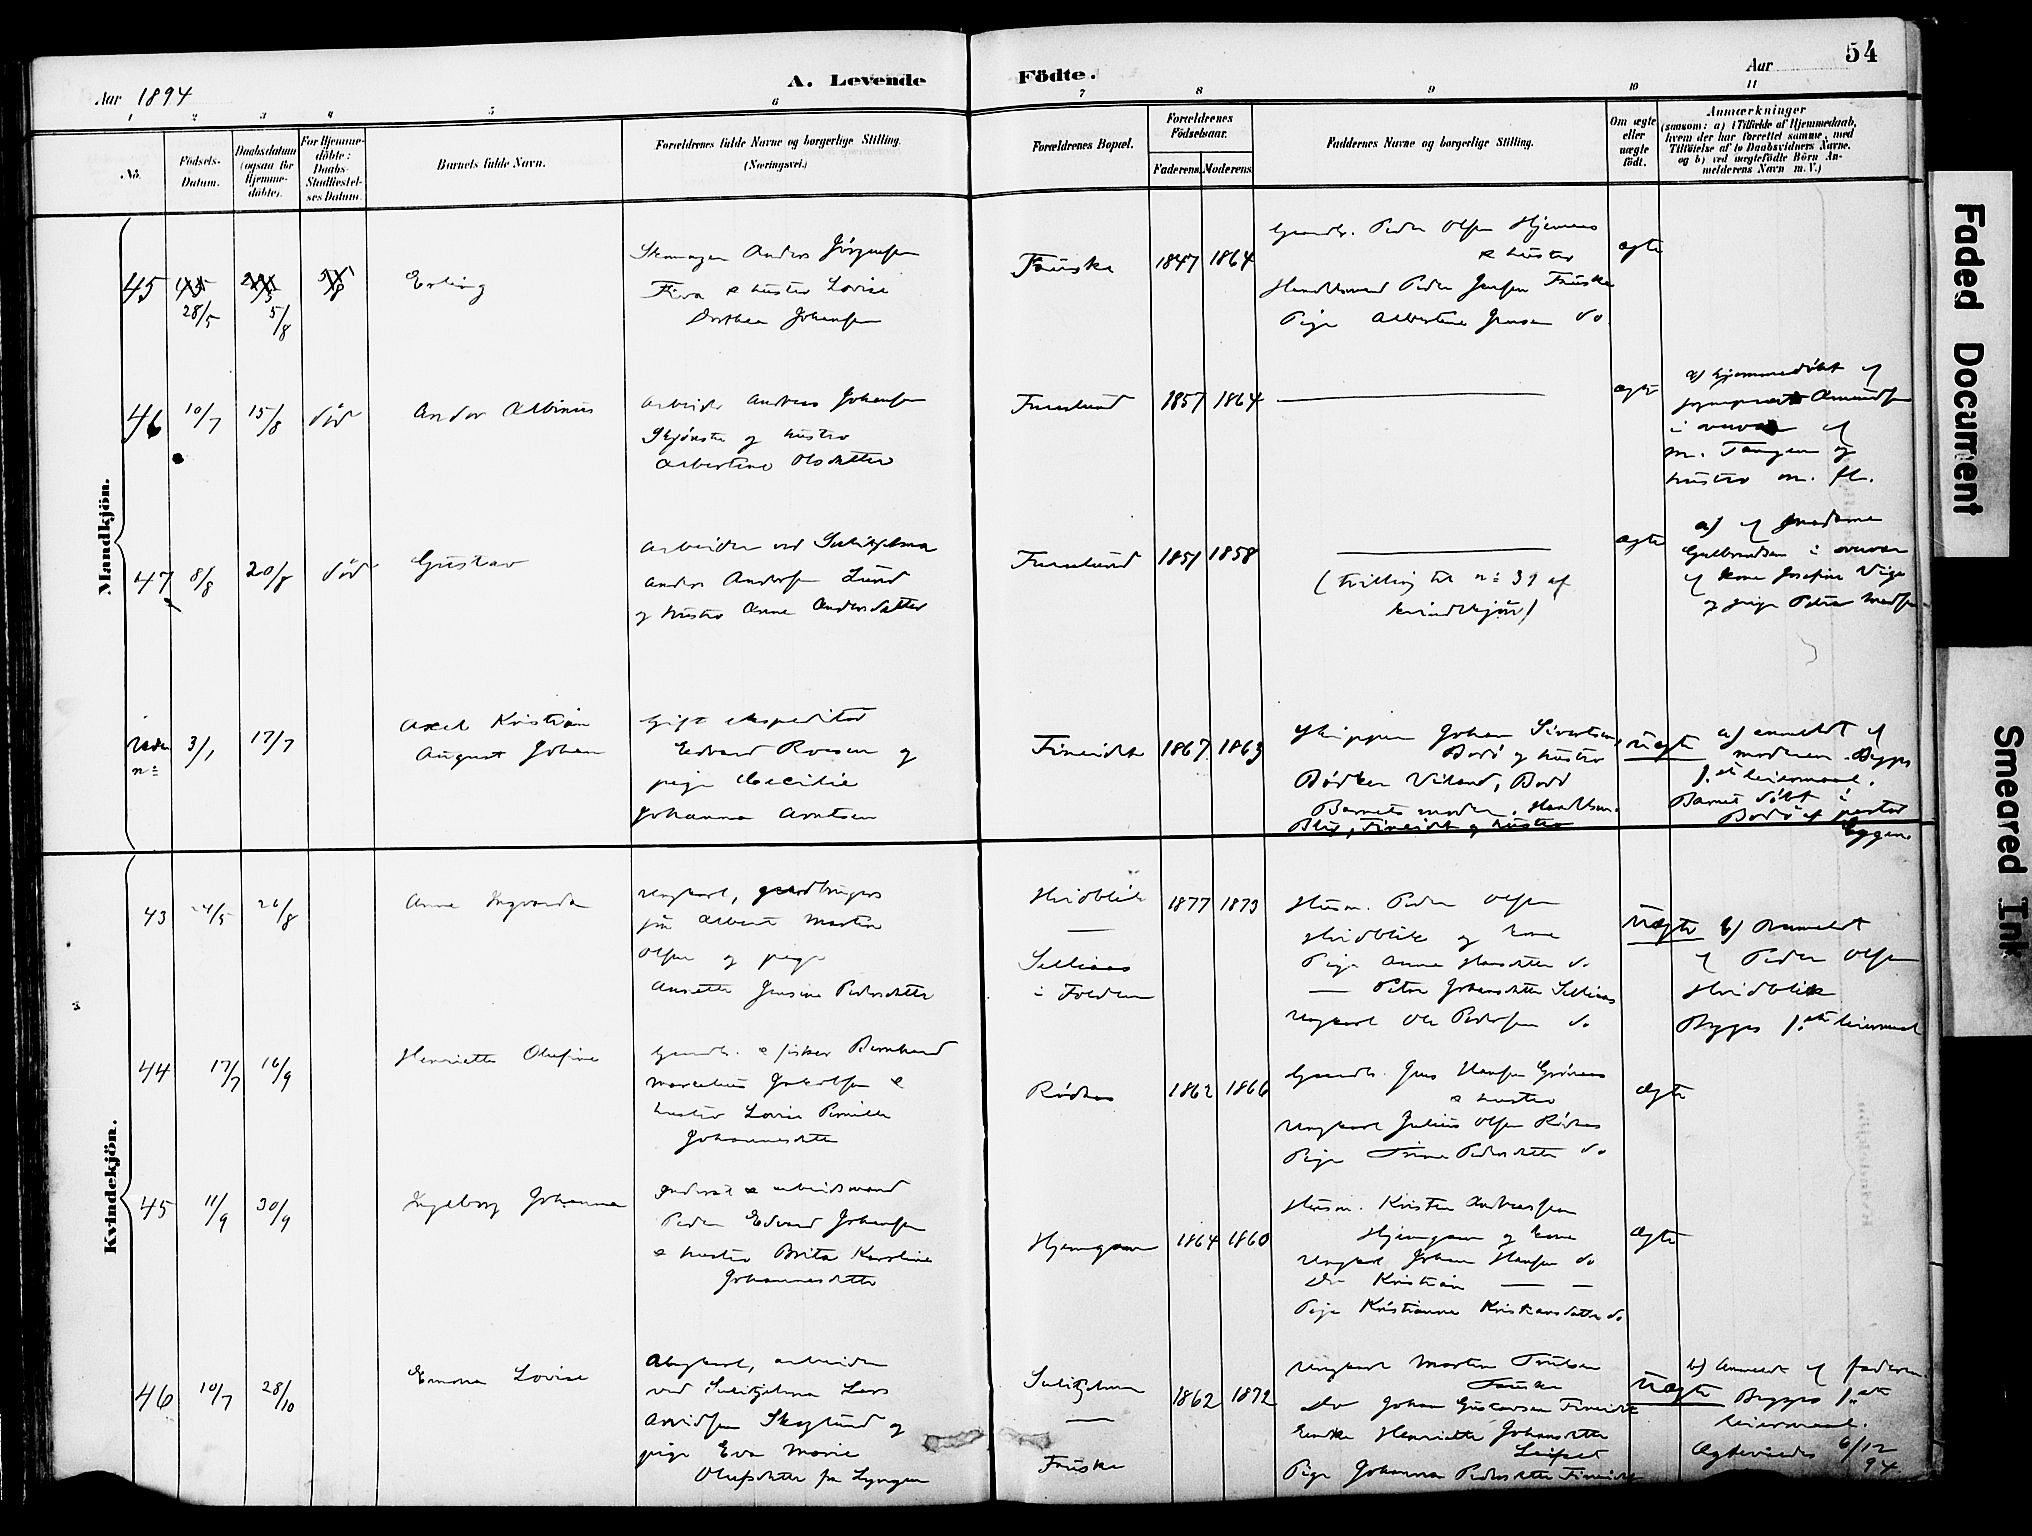 54
A. Levende Födte.
Aar 1894
Aar
1 2 3 4 5 6 7 8 9 10 11
No.
Födsels-Datum.
Daabsdatum (ogsaa for Hjemme-døbte).
For Hjemme-döbte: Daabs-Stadfæstel-ses Datum.
Barnets fulde Navn.
Forældrenes fulde Navne og borgerlige Stilling. (Næringsvei.)
Forældrenes Bopæl.
Forældrenes Födselsaar.
Faderens. Moderens.
Faddernes Navne og borgerlige Stilling.
Om ægte eller uægte födt.
Anmærkninger
(saasom: a) i Tilfælde af Hjemmedaab,
hvem der har forrettet samme, med
Tilföielse af to Daabsvidners Navne.
og b) ved uægtefödte Börn An-
melderens Navn m. V.)
Mandkjön.
45 28/5 5/8
Erling
Skomager Anders Jörgensen
Fiva & hustro Lovise
Dorthea Johansen
Fauske
1847 1864
Gaardb. Peder Olsen Hjemaas
& hustro
Handelsmand Peder Jensen Fauske
Pige Albertine Jensen do
ægte
46 10/7 15/8 död
Andor Albinus
Arbeider Andreas Johansen
Skjönstu og hustro
Albertine Olsdatter
Furulund
1857 1864
ægte
a) hjemmedöbt af
Amundsen
i overvær af
M. Tangen og
hustro m. fl.
47 8/8 20/8 död
Gustav
Arbeider ved Sulitjelma
Anders Andersen Lund
og hustro Anne Andersdatter
Furulund
1851 1858
(tvilling til no 39 af
kvindekjön)
ægte
a) af madame
Gulbrandsen i overvær
af kone Josefine Vige
og pige Petra Madsen
Uden
no
3/1 17/7
Axel Kristian
August Johan
Gift ekspeditör
Edvard Rosen og
pige Cecilie
Johanna Arntsen
Finneidet
1867 1863
Skipper Johan Sivertsen,
Bodö og hustro
Bödker Vikand, Bodö
Barnets moder, Handelsm.
Blix, Finneidet og hustro
Uægte
a) anmeldt af
moderen. Begges
1ste leiermaal.
Barnet döbt i
Bodö af pastor
Eggen.
Kvindekjön.
43 24/5 26/8
Anne Ingvarda
Ungkarl, gaardbrugers
sön Albert Martin
Olsen og pige
Anette Jensine Pedersdatter
Hvidblik
Selliaas
i Folden
1877 1873
Husm. Peder Olsen
Hvidblik og kone
Pige Anne Hansdatter do
— Petra Johansdatter Selliaas
Ungkarl Ole Pedersen do
Uægte
b) Anmeldt
af Peder Olsen
Hvidblik
Begges 1ste leiermaal
44 17/7 16/9
Henriette Olufine
Gaardb. & fisker Bernhard
Marcelius Jakobsen &
hustro Lovise Pernille
Johannesdatter
Rödaas
1862 1866
Gaardb. Jens Hansen Grönaas
& hustro
Ungkarl Julius Olsen Rödaas
Pige Trine Pedersdatter do
Ægte
45 11/9 30/9
Ingeborg Johanna
Inderst & arbeidsmand
Peder Edvard Johansen
& hustro Brita Karoline
Johannesdatter
Hjemgam
1864 1860
Husm. Kristen Andreassen
Hjemgam og kone
Ungkarl Johan Hansen do
Do Kristian — —
Pige Kristianna Kristiansdatter do
Ægte
46 10/7 28/10
Emma Lovise
Ungkarl, arbeider
ved Sulitjelma Lars
Arvidsen Skoglund og
pige Eva Marie
Olufsdatter fra Lyngen
Sulitjelma
Fauske
1862 1872
Ungkarl Martin Trulsen
Fauske
Do Johan Gustavsen Finneidet
Enke Henriette Johansdatter
Leifset
Pige Johanna Pedersdatter Finneidet
Uægte
b) Anmeldt af faderen
Begges 1ste
leiermaal.
Ægteviede 6/12
94.
Faded Document
Smeared Ink